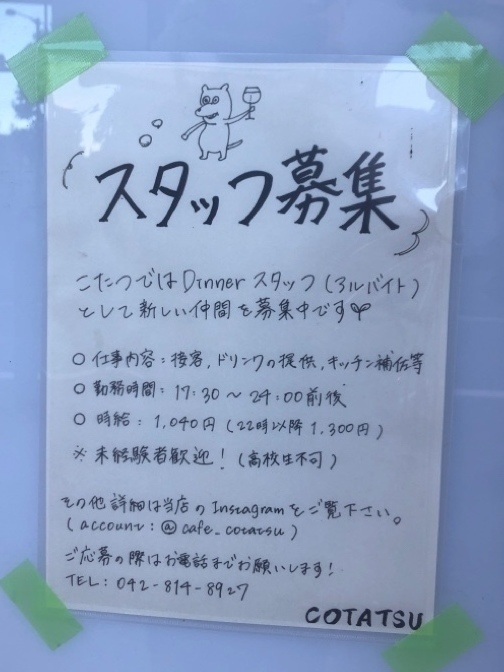 スタッフ募集
こたつではDinnerスタッフ(アルバイト)
として新しい仲間を募集中です
○ 仕事内容:接客,ドリンクの提供,キッチン補佐等
○ 勤務時間:17:30～24:00前後
○ 時給:1,040円(22時以降1,300円)
※ 未経験者歓迎!(高校生不可)
その他詳細は当店のInstagramをご覧下さい。
(account:@cafe_cotatsu)
ご応募の際はお電話までお願いします!
TEL:042-814-8927
COTATSU